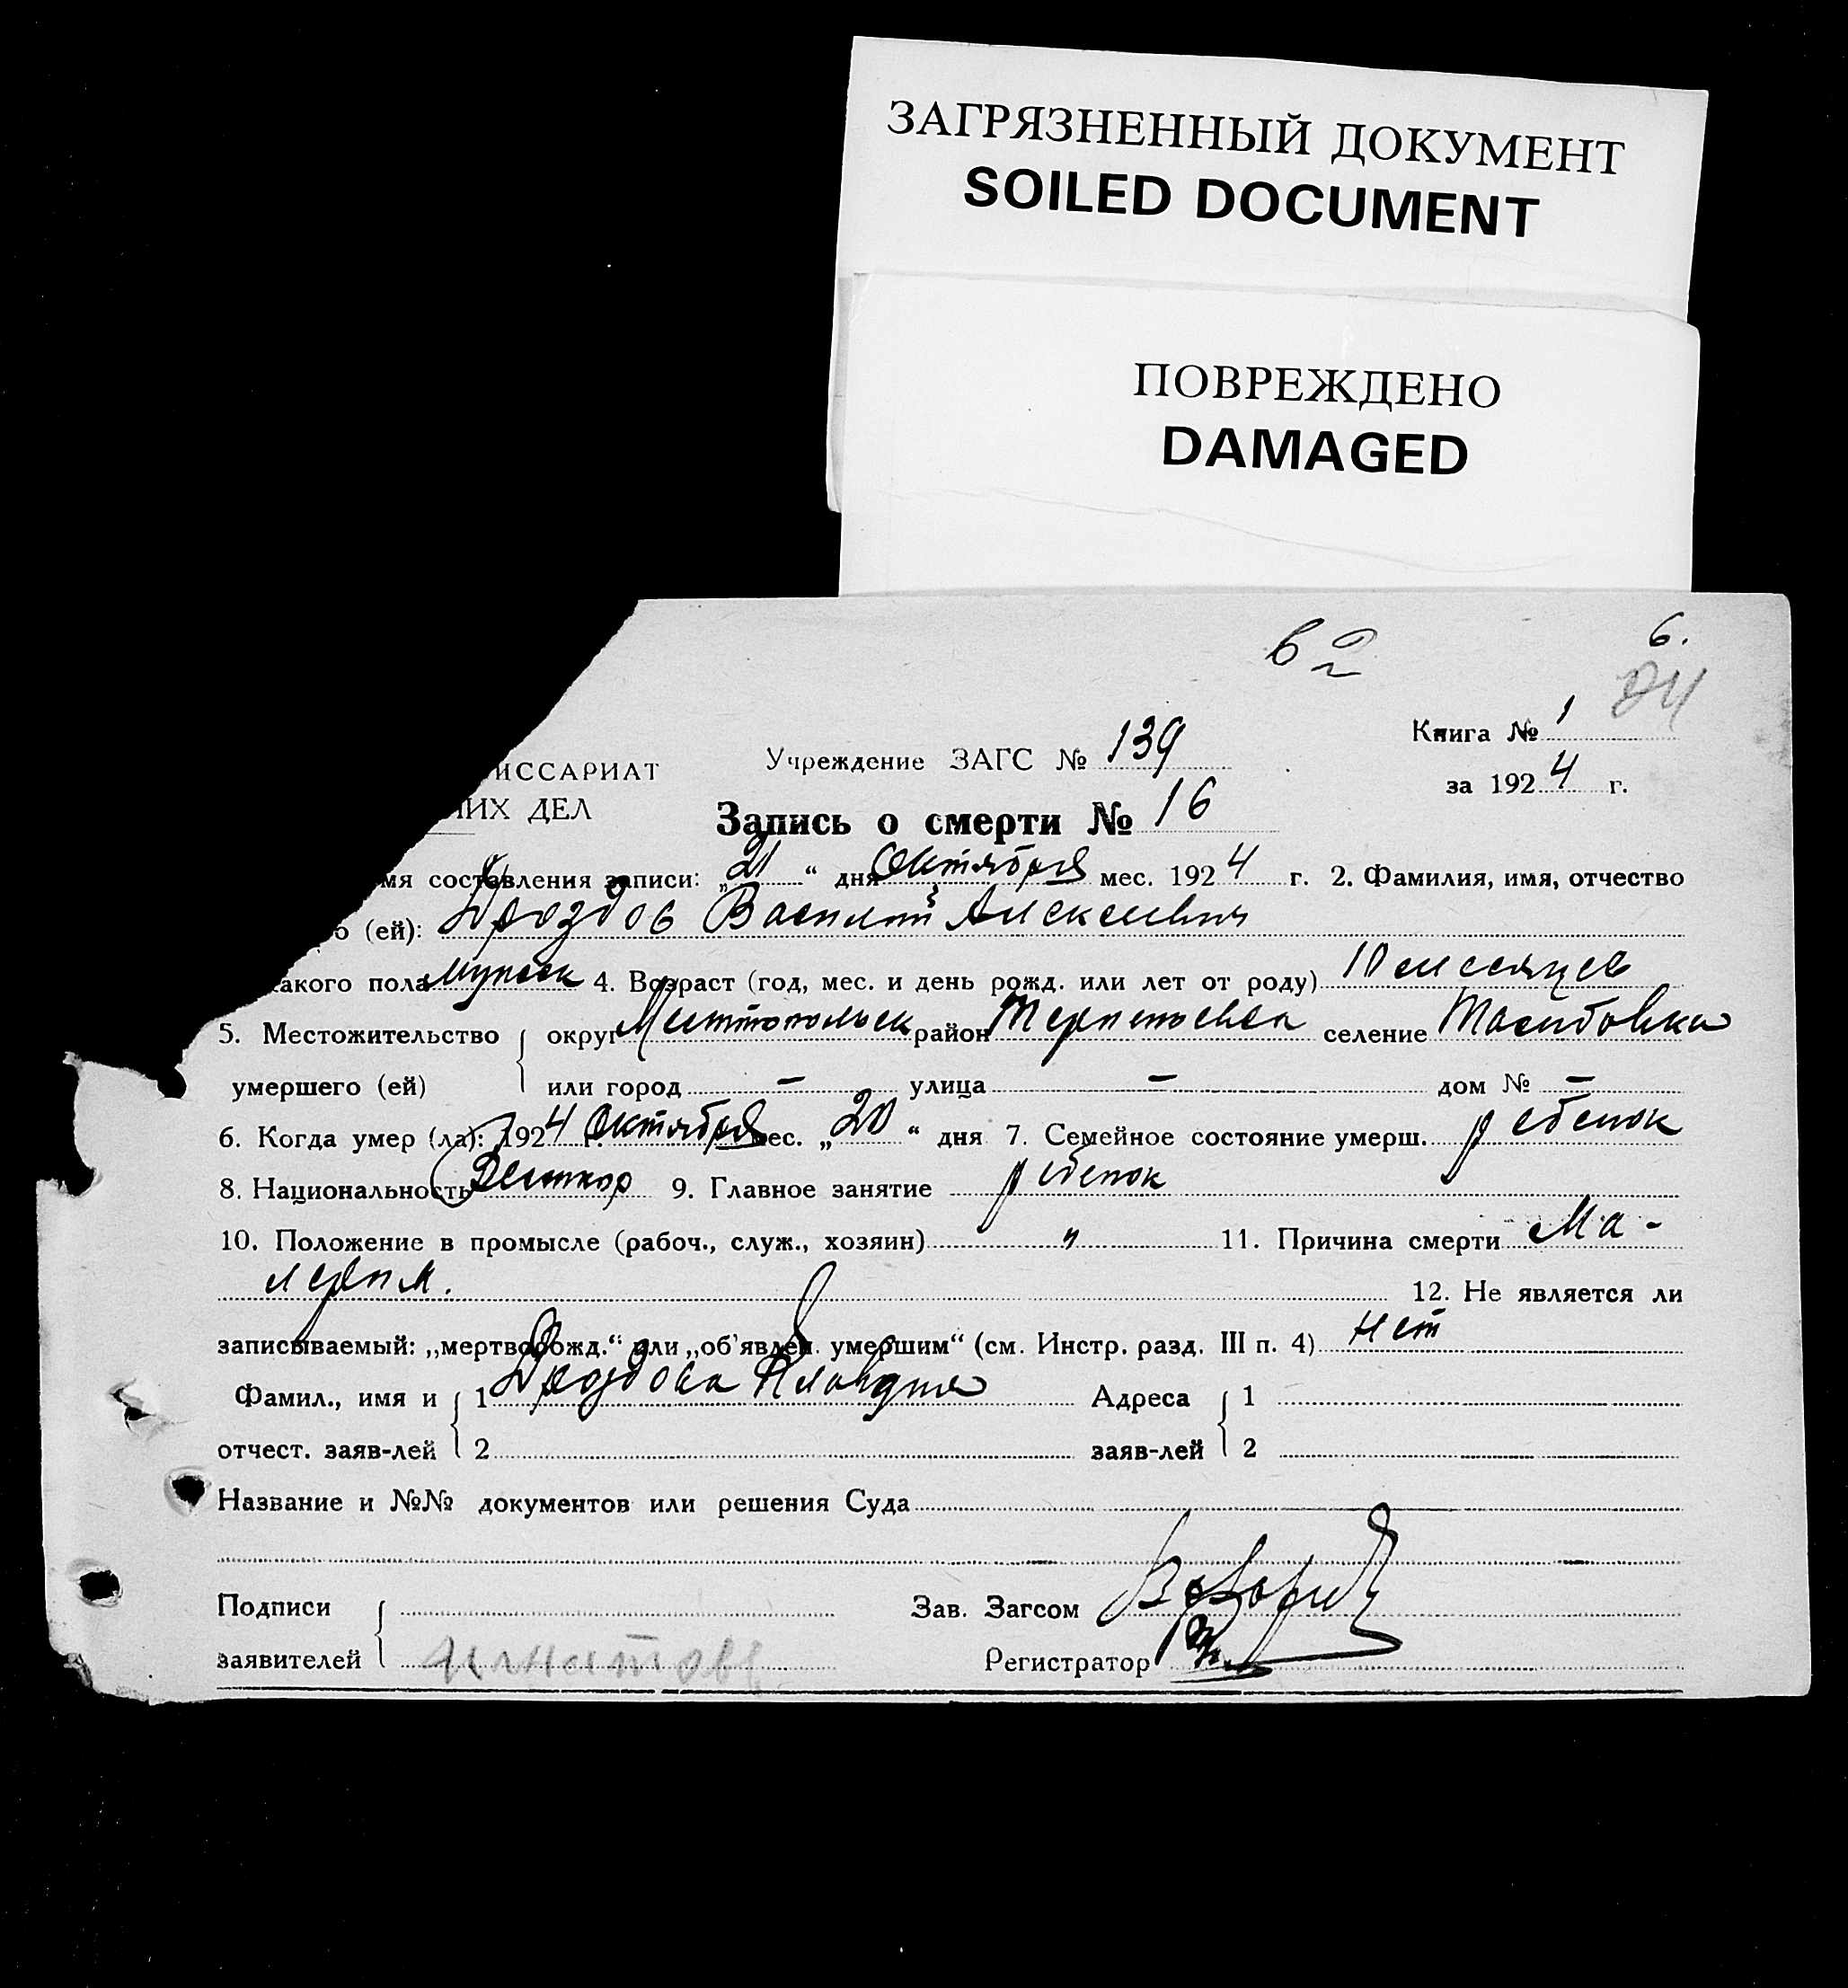 ЗАГРЯЗНЕННЫЙ ДОКУМЕНТ
SOILED DOCUMENT
ПОВРЕЖДЕНО
DAMAGED
6.
Книга № 1
ИССАРИАТ Учреждение ЗАГС № 139
за 1924 г.
ИХ ДЕЛ
Запись о смерти № 16
мя составления записи: „21“ дня Октября мес. 1924 г. 2. Фамилия, имя, отчество
о (ей): Дроздов Василий Алексеевич
акого пола мужск 4. Возраст (год, мес. и день рожд. или лет от роду) 10 месяцев
5. Местожительство округ район селение
умершего (ей) или город — улица — дом № —
6. Когда умер (ла): 1924 г. Октября мес. „20“ дня 7. Семейное состояние умерш. ребенок
8. Национальность 9. Главное занятие ребенок
10. Положение в промысле (рабоч., служ., хозяин) „ 11. Причина смерти Ма-
12. Не является ли
записываемый: „мертворожд.“ или „об'явлен. умершим“ (см. Инстр. разд. III п. 4) нет
Фамил., имя и 1 Дроздова Адреса 1
отчест. заяв-лей 2 заяв-лей 2
Название и №№ документов или решения Суда
Подписи Зав. Загсом
заявителей Регистратор